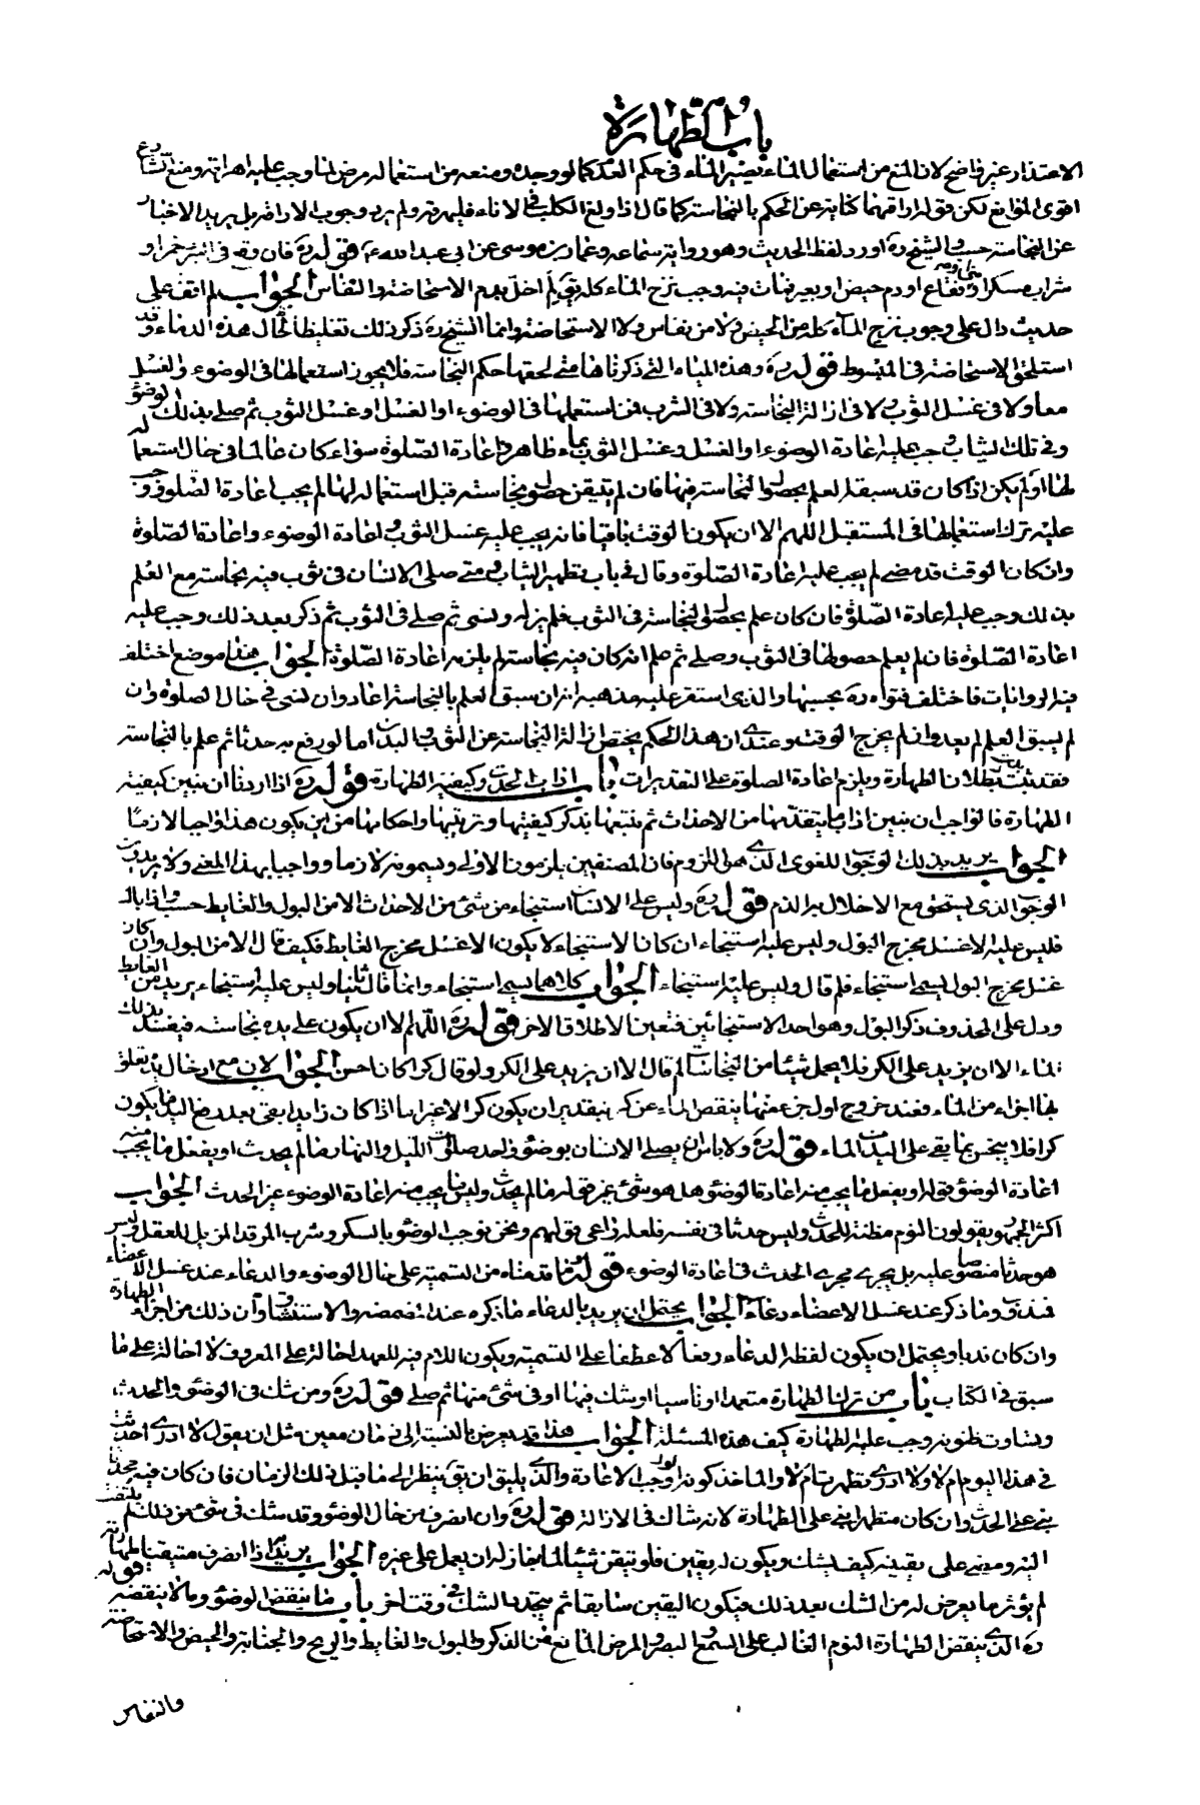 باب الطهارة
الاعتذار غير واضح لان المنع من استعمال الماء يصير الماء في حكم العدم كما لو وجده ومنعه من استعماله مرض لما وجب عليه اهراقه ومنع الشارع
اقوى الموانع لكن قوله اراقهما كناية عن الحكم بالنجاسة كما قال اذا ولغ الكلب في الاناء فليهرقه ولم يرد وجوب الاراقة بل يريد الاخبار
عن النجاسة حسب والشيخ ره اورد لفظ الحديث وهو رواية سماعة وعمار بن موسى عن ابي عبد الله ع قوله ره فان وقع في البئر خمر او
شراب مسكر او فقاع او دم حيض او بعير فمات فيه وجب نزح الماء كله لم اخل بدم الاستحاضة والنفاس الجواب لم اقف على
حديث دال على وجوب نزح الماء كله من الحيض ولا من نفاس ولا الاستحاضة وانما الشيخ ره ذكر ذلك تغليظا لحال هذه الدماء وقد
استلحق الاستحاضة في المبسوط قوله ره وهذه المياه التي ذكرناها متى لحقها حكم النجاسة فلا يجوز استعمالها في الوضوء والغسل
معا ولا في غسل الثوب ولا في ازالة النجاسة ولا في الشرب فمن استعملها في الوضوء او الغسل او غسل الثوب ثم صلى بذلك الوضوء
وفي تلك الثياب وجب عليه اعادة الوضوء او الغسل وغسل الثوب بماء طاهر واعادة الصلوة سواء كان عالما في حال استعماله
لها او لم يكن اذا كان قد سبقه العلم بحصول النجاسة فيها فان لم يتيقن حصول نجاسته قبل استعماله لها لم يجب اعادة الصلوة ووجب
عليه ترك استعمالها في المستقبل اللهم الا ان يكون الوقت باقيا فانه يجب عليه غسل الثوب واعادة الوضوء واعادة الصلوة
وان كان الوقت قد مضى لم يجب عليه اعادة الصلوة وقال في باب تطهير الثياب ومتى صلى الانسان في ثوب فيه نجاسة مع العلم
بذلك وجب عليه اعادة الصلوة فان كان علم بحصول النجاسة في الثوب فلم يزله ونسي ثم صلى في الثوب ثم ذكر بعد ذلك وجب عليه
اعادة الصلوة فان لم يعلم حصولها في الثوب وصلى ثم علم انه كان فيه نجاسة لم يلزمه اعادة الصلوة الجواب هذا موضع اختلف
فيه الروايات فاختلف فتواه ره بحسبها والذي استقر عليه مذهبه انه ان سبق العلم بالنجاسة اعاد وان نسي في حال الصلوة وان
لم يسبق العلم لم يعد وان لم يخرج الوقت وعندي ان هذا الحكم يختص ازالة النجاسة عن الثوب والبدن اما لو رفع به حدثا ثم علم بالنجاسة
فقد تبين بطلان الطهارة ويلزم اعادة الصلوة على التقديرات باب اداب الحدث وكيفية الطهارة قوله ره اذا اردنا ان نبين كيفية
الطهارة فالواجب ان نبين اداب ما يتقدمها من الاحداث ثم نتبعها بذكر كيفيتها وترتيبها واحكامها من اين يكون هذا واجبا لازما
الجواب يريد بذلك الوجوب اللغوي الذي هو اللزوم فان المصنفين يلزمون الاولى ويسمونه لازما وواجبا بهذا المعنى ولا يريدون
الوجوب الذي يستحق مع الاخلال به الذم قوله ره وليس على الانسان استنجاء من شيء من الاحداث الا من البول والغايط حسب واذا بال
فليس عليه الا غسل مخرج البول وليس عليه استنجاء ان كان الاستنجاء لا يكون الا غسل مخرج الغايط فكيف قال الا من البول وان كان
غسل مخرج البول ليسمى استنجاء فلم قال وليس عليه استنجاء الجواب كلاهما يسمى استنجاء وانما قال ثانيا وليس عليه استنجاء يريد من الغايط
ودل على المحذوف ذكر البول وهو احد الاستنجائين فتعين الاطلاق الاخر قوله ره اللهم الا ان يكون على يده نجاسة فيفسد بذلك
الماء الا ان يزيد على الكر فلا يحمل شيئا من النجاسات لم قال الا ان يزيد على الكر ولو قال كرا كان احسن الجواب لان مع ادخال يده تعلق
بها اجزاء من الماء فعند خروج اول جزء منها ينقص الماء عن كر فيتقدير ان يكون كرا لا غير اما اذا كان زايدا يبقى بعد رفع اليد ما يكون
كرا فلا ينجس بما يبقى على اليد من الماء قوله ره ولا باس ان يصلي الانسان بوضوء واحد صلوات الليل والنهار ما لم يحدث او يفعل ما يجب منه
اعادة الوضوء قوله او يفعل ما يجب منه اعادة الوضوء هل هو شيء غير قوله ما لم يحدث وليس ما يجب منه اعادة الوضوء غير الحدث الجواب
اكثر الجمهور يقولون النوم مظنة للحدث وليس حدثا في نفسه فلعله راعى قولهم ونحن نوجب الوضوء بالسكر وشرب المرقد المزيل للعقل وليس
هو حدثا منصوصا عليه بل يجري مجرى الحدث في اعادة الوضوء قوله ره ما قدمناه من التسمية على حال الوضوء والدعاء عند غسل الاعضاء
فندب وما ذكر عند غسل الاعضاء دعاء الجواب يحتمل ان يريد بالدعاء ما ذكره عند المضمضة والاستنشاق وان ذلك من اجزاء الطهارة
وان كان ندبا ويحتمل ان يكون لفظه الدعاء رفعا لا عطفا على التسمية ويكون اللام فيه للعهد احالة على المعروف لا احالة على ما
سبق في الكتاب باب من ترك الطهارة متعمدا او ناسيا او يشك فيها او في شيء منها ثم صلى قوله ره ومن شك في الوضوء والحدث
وتساوت ظنونه وجب عليه الطهارة كيف هذه المسئلة الجواب هذا قد يعرض بالنسبة الى زمان معين مثل ان يقول لا ادري احدثت
في هذا اليوم ام لا ولا ادري تطهرت ام لا والماخذ كونه اوجب الاعادة والذي يليق ان يق ينظر الى ما قبل ذلك الزمان فان كان فيه محدثا
بنى على الحدث وان كان متطهرا بنى على الطهارة لانه شاك في الازالة قوله ره وان انصرف من حال الوضوء وقد شك في شيء من ذلك لم يلتفت
اليه ومضى على يقينه كيف يشك ويكون له يقين فلو تيقن شيئا لما جاز له ان يعمل على غيره الجواب يريد اذا انصرف متيقنا لطهارته
لم يؤثر ما يعرض له من الشك بعد ذلك فيكون اليقين سابقا ثم يتجدد الشك في وقت اخر باب ما ينقض الوضوء وما لا ينقضه قوله
ره الذي ينقض الطهارة النوم الغالب على السمع والبصر والمرض المانع من الذكر والبول والغايط والريح والجنابة والحيض والاستحاضة
والنفاس